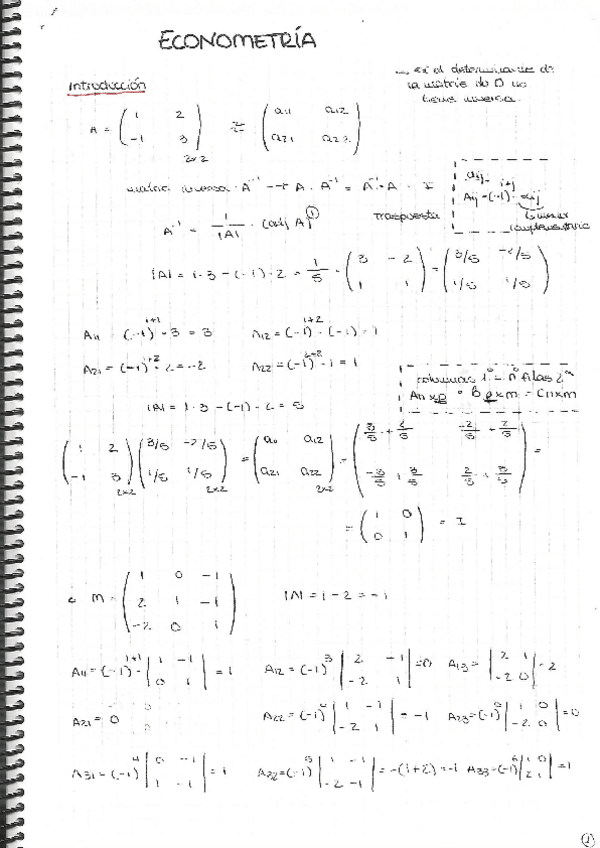 ECONOMETRÍA
→ si el determinante de
la matriz es 0 no
tiene inversa.
Introducción
A = ( 1 2 ; -1 3 )2x2 ( a11 a12 ; a21 a22 )
matriz inversa · A^-1 → A · A^-1 = A^-1 · A = I
aij
Aij = (-1)^i+j · αij
menor
complementario
A^-1 = 1/|A| · (adj A)^t traspuesta
|A| = 1·3 - (-1)·2 = 1/5 · ( 3 -2 ; 1 1 ) = ( 3/5 -2/5 ; 1/5 1/5 )
A11 (-1)^1+1 · 3 = 3 A12 = (-1)^1+2 · (-1) = 1
A21 = (-1)^1+2 · 2 = -2 A22 = (-1)^2+2 · 1 = 1
columnas 1ª = nº filas 2ª
Anxp · Bpxm = Cnxm
|A| = 1·3 - (-1)·2 = 5
( 1 2 ; -1 3 )2x2 ( 3/5 -2/5 ; 1/5 1/5 )2x2 = ( a11 a12 ; a21 a22 )2x2 = ( 3/5 + 2/5 -2/5 + 2/5 ; -3/5 + 3/5 2/5 + 3/5 ) =
= ( 1 0 ; 0 1 ) = I
M = ( 1 0 -1 ; 2 1 -1 ; -2 0 1 ) |A| = 1 - 2 = -1
A11 = (-1)^1+1 · | 1 -1 ; 0 1 | = 1 A12 = (-1)^3 | 2 -1 ; -2 1 | = 0 A13 = | 2 1 ; -2 0 | = 2
A21 = 0 A22 = (-1)^4 | 1 -1 ; -2 1 | = -1 A23 = (-1) | 1 0 ; -2 0 | = 0
A31 = (-1)^4 | 0 -1 ; 1 -1 | = 1 A22 = (-1)^5 | 1 -1 ; 2 -1 | = -(1+2) = -1 A33 = (-1)^6 | 1 0 ; 2 1 | = 1
1